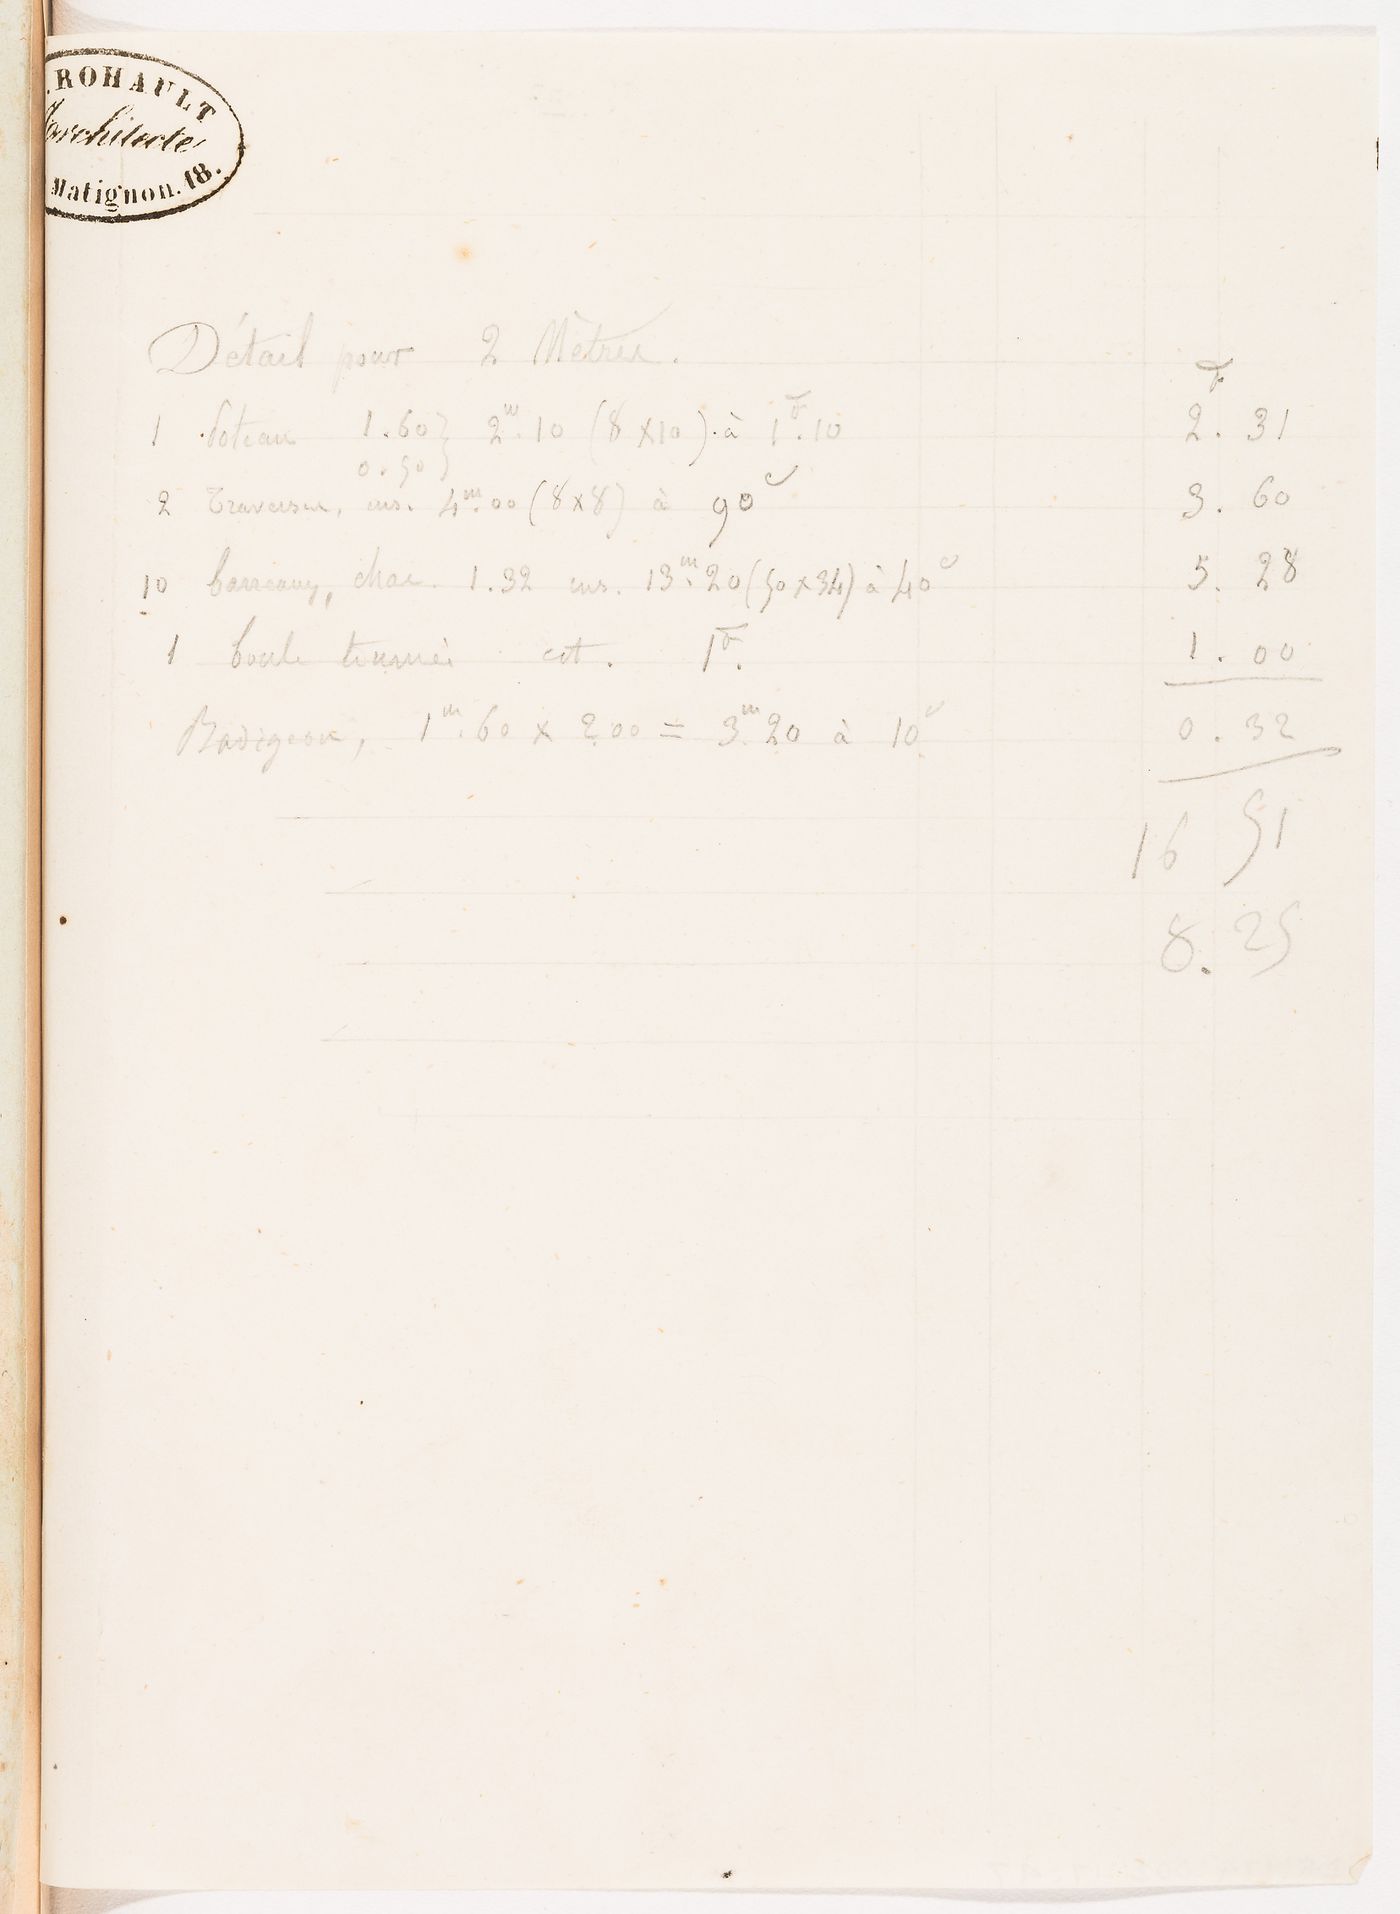 .ROHAULT
architecte
Matignon. 18.
Détail pour 2 Mètres.
F
1 Poteau 1.60 } 2m.10 (8 x 10) à 1F.10 2. 31
0.50
2 Traverses, ens. 4m.00 (8 x 8) à 90c 3. 60
10 barreaux, chac. 1.32 ens. 13m.20 (50 x 34) à 40c 5. 28
1 boule tournée est. 1F. 1. 00
Badigeon, 1m.60 x 2.00 = 3m20 à 10c 0. 32
16 51
8. 25